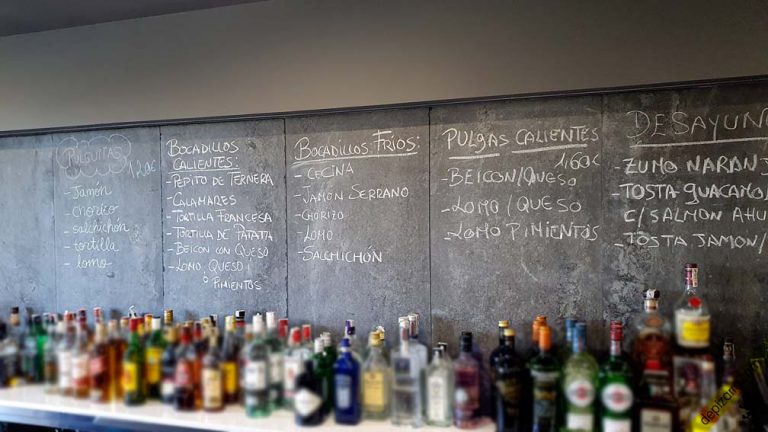 PULGUITAS
1,20€
- Jamón
- chorizo
- salchichón
- tortilla
- lomo
BOCADILLOS
CALIENTES:
- PEPITO DE TERNERA
- CALAMARES
- TORTILLA FRANCESA
- TORTILLA DE PATATA
- BEICON CON QUESO
- LOMO QUESO/
O PIMIENTOS
BOCADILLOS FRÍOS:
- CECINA
- JAMÓN SERRANO
- CHORIZO
- LOMO
- SALCHICHÓN
PULGAS CALIENTES
1,60€
- BEICON/QUESO
- LOMO/QUESO
- LOMO PIMIENTOS
DESAYUN
- ZUMO NARANJ
- TOSTA GUACAMO
C/SALMON AHU
- TOSTA JAMON/